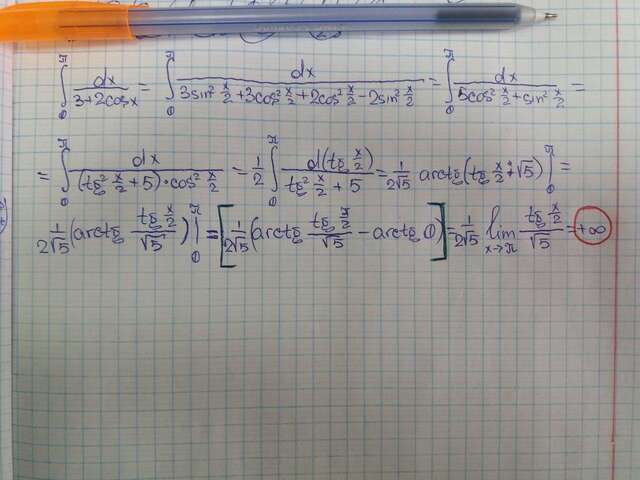 ∫₀^π dx/(3+2cosx) = ∫₀^π dx/(3sin² x/2 + 3cos² x/2 + 2cos² x/2 − 2sin² x/2) = ∫₀^π dx/(5cos² x/2 + sin² x/2) =
= ∫₀^π dx/((tg² x/2 + 5)·cos² x/2) = 1/2 ∫₀^π d(tg x/2)/(tg² x/2 + 5) = 1/(2√5) arctg(tg x/2 ÷ √5) |₀^π =
1/(2√5) (arctg (tg x/2)/√5) |₀^π = [1/(2√5) (arctg (tg π/2)/√5 − arctg 0)] = 1/(2√5) lim x→π (tg x/2)/√5 = +∞